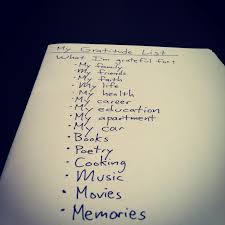 My Gratitude List
What I'm grateful for:
• My family
• My friends
• My faith
• My life
• My health
• My career
• My education
• My apartment
• My car
• Books
• Poetry
• Cooking
• Music
• Movies
• Memories